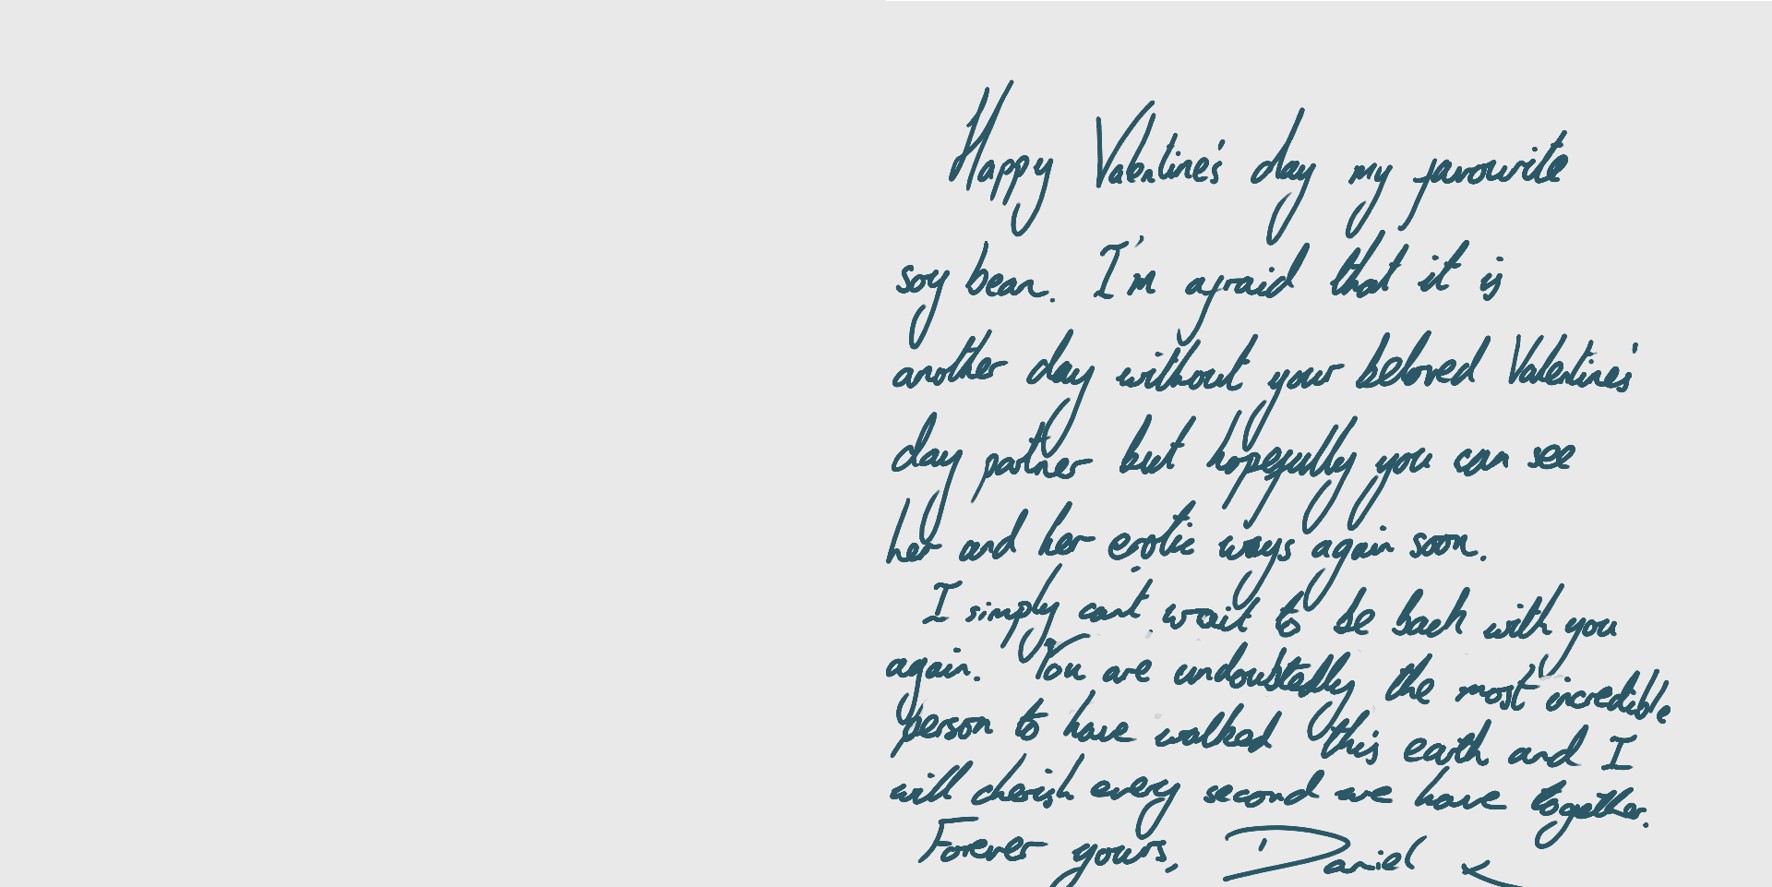 Happy Valentine's day my favourite
soy bean. I'm afraid that it is
another day without your beloved Valentine's
day partner but hopefully you can see
her and her erotic ways again soon.
I simply can't wait to be back with you
again. You are undoubtedly the most incredible
person to have walked this earth and I
will cherish every second we have together.
Forever yours, Daniel